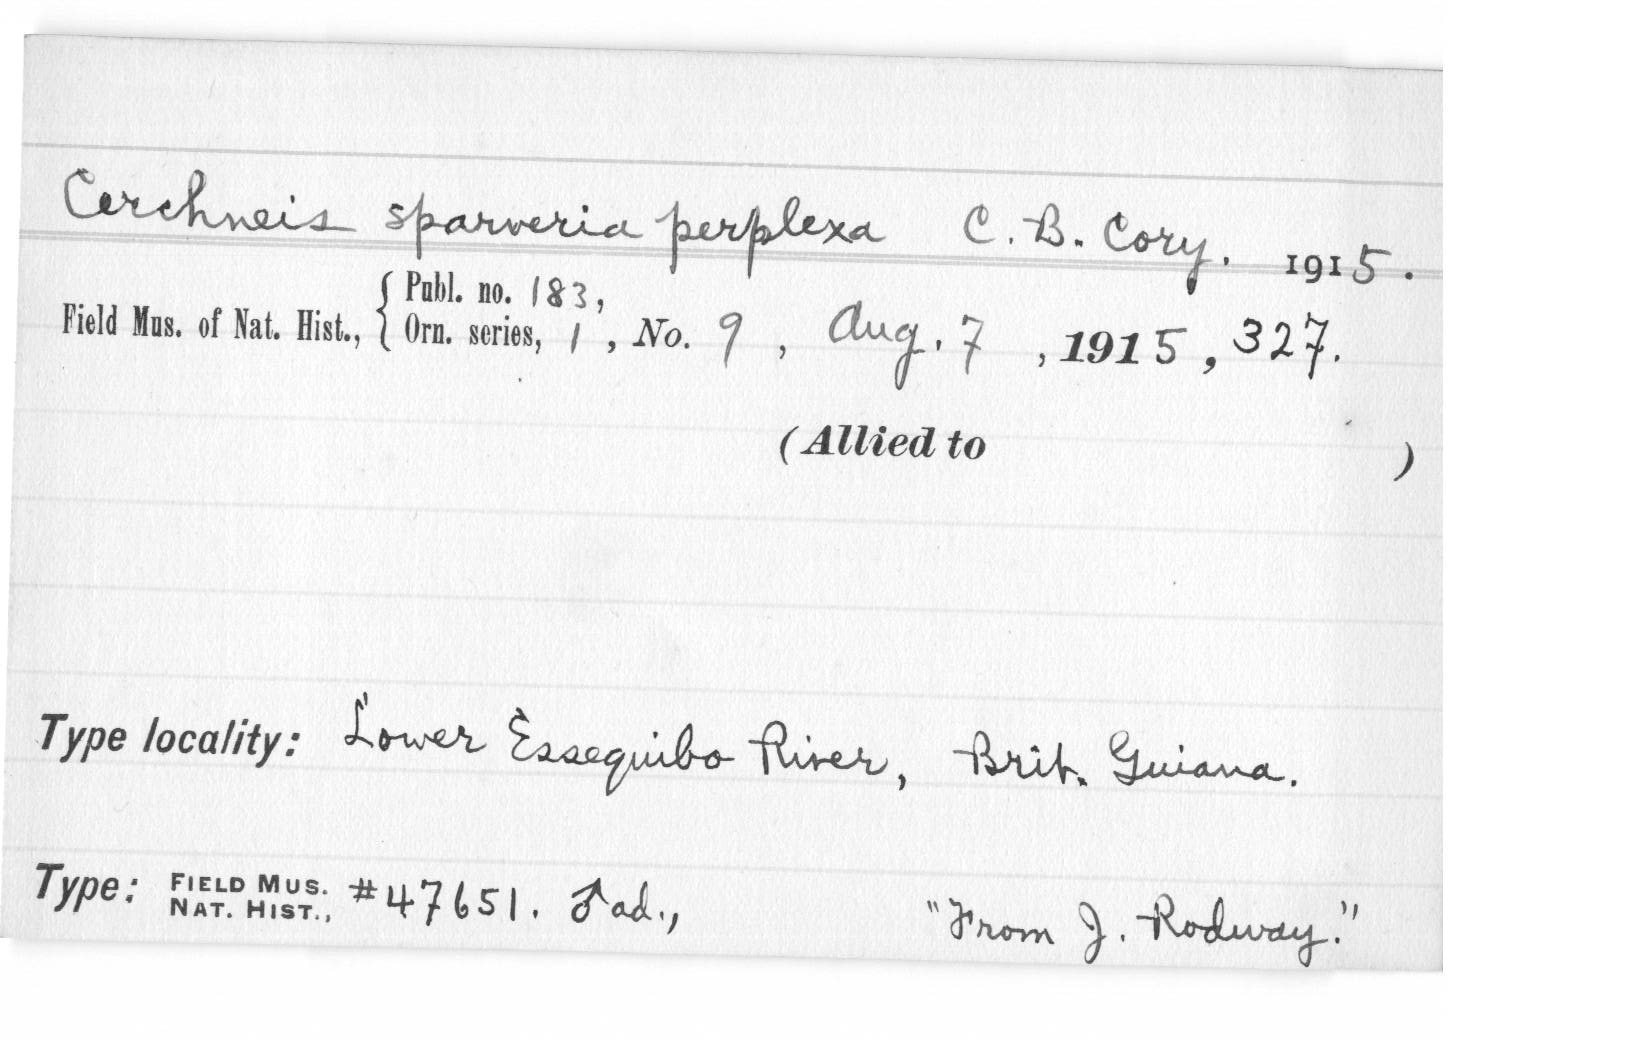 Cerchneis sparveria perplexa C. B. Cory. 1915.
Field Mus. of Nat. Hist., { Publ. no. 183,
Orn. series, 1, No. 9, Aug. 7, 1915, 327.
(Allied to )
Type locality: Lower Essequibo River, Brit. Guiana.
Type: FIELD MUS. NAT. HIST., #47651. ♂ ad., "From J. Rodway."